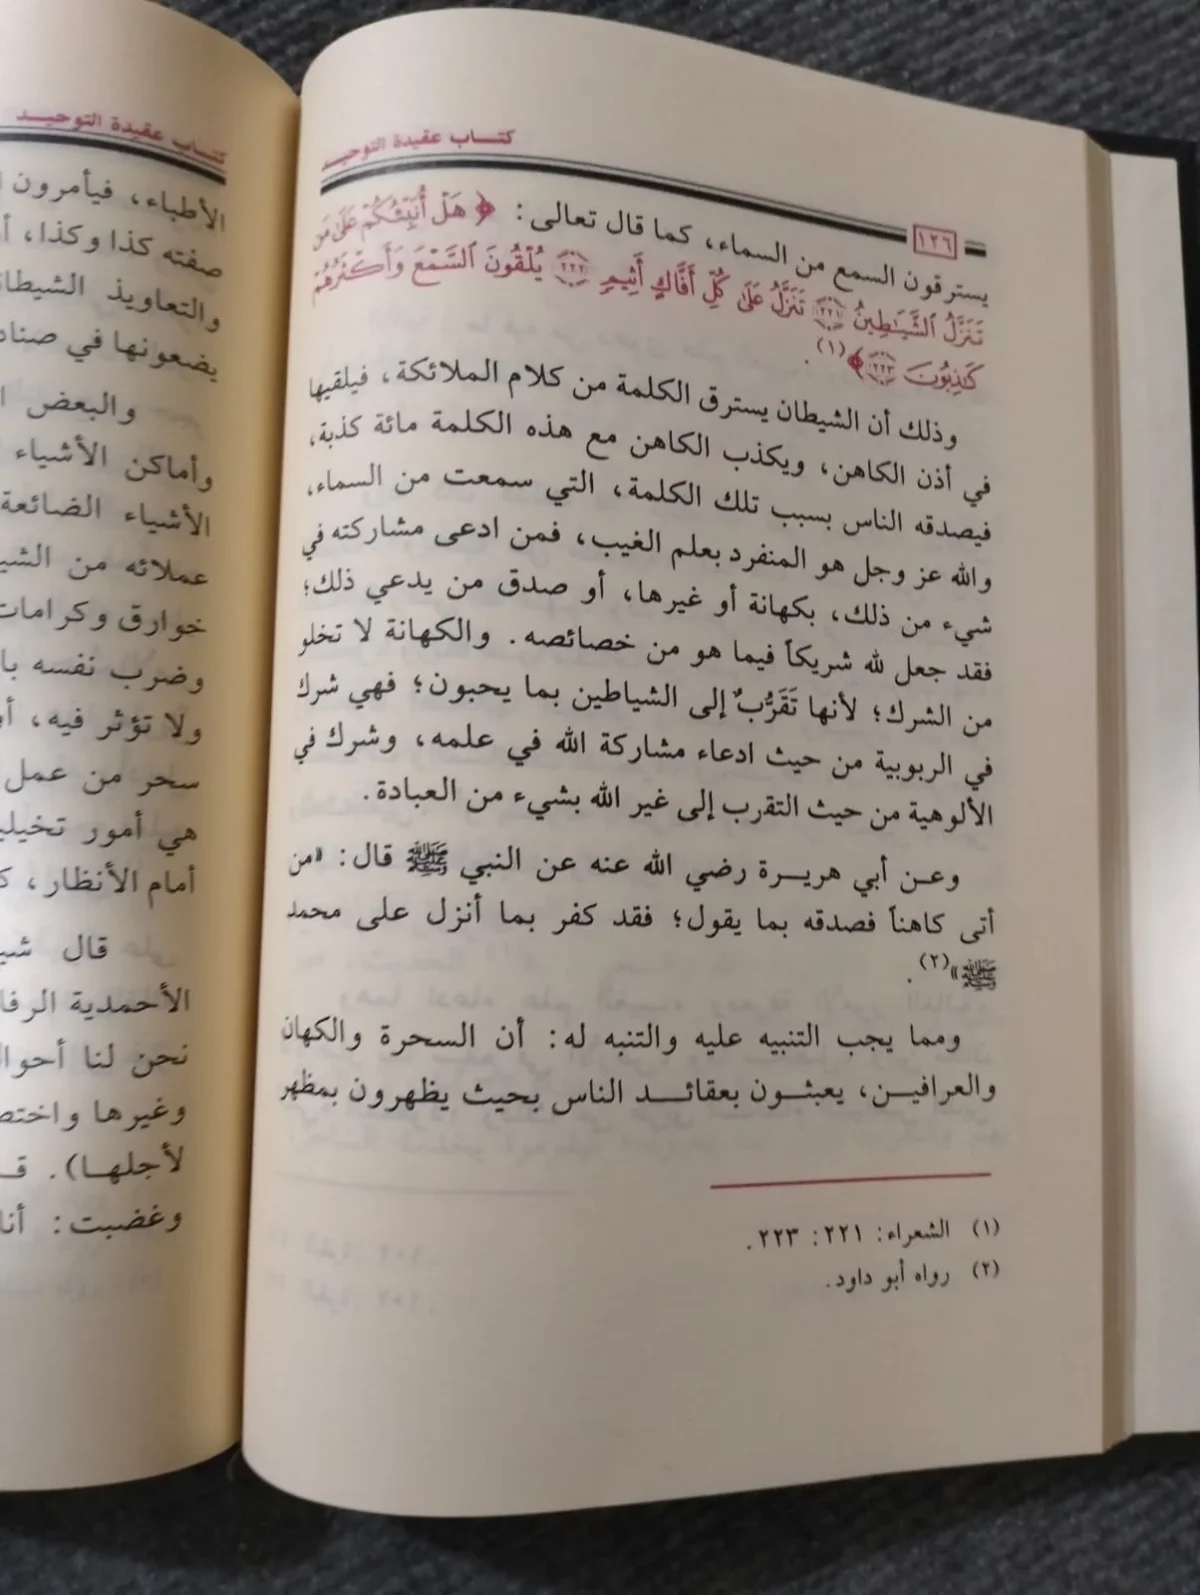 كتاب عقيدة التوحيد
١٢٦
يسترقون السمع من السماء، كما قال تعالى: ﴿هَلْ أُنَبِّئُكُمْ عَلَىٰ مَن
تَنَزَّلُ ٱلشَّيَٰطِينُ ٢٢١ تَنَزَّلُ عَلَىٰ كُلِّ أَفَّاكٍ أَثِيمٍ ٢٢٢ يُلْقُونَ ٱلسَّمْعَ وَأَكْثَرُهُمْ
كَٰذِبُونَ ٢٢٣﴾(١).
وذلك أن الشيطان يسترق الكلمة من كلام الملائكة، فيلقيها
في أذن الكاهن، ويكذب الكاهن مع هذه الكلمة مائة كذبة،
فيصدقه الناس بسبب تلك الكلمة، التي سمعت من السماء،
والله عز وجل هو المنفرد بعلم الغيب، فمن ادعى مشاركته في
شيء من ذلك، بكهانة أو غيرها، أو صدق من يدعي ذلك؛
فقد جعل لله شريكاً فيما هو من خصائصه. والكهانة لا تخلو
من الشرك؛ لأنها تَقَرُّبٌ إلى الشياطين بما يحبون؛ فهي شرك
في الربوبية من حيث ادعاء مشاركة الله في علمه، وشرك في
الألوهية من حيث التقرب إلى غير الله بشيء من العبادة.
وعن أبي هريرة رضي الله عنه عن النبي ﷺ قال: «من
أتى كاهناً فصدقه بما يقول؛ فقد كفر بما أنزل على محمد
ﷺ»(٢).
ومما يجب التنبيه عليه والتنبه له: أن السحرة والكهان
والعرافين، يعبثون بعقائد الناس بحيث يظهرون بمظهر
(١) الشعراء: ٢٢١: ٢٢٣.
(٢) رواه أبو داود.
كتاب عقيدة التوحيد
الأطباء، فيأمرون
صفته كذا وكذا،
والتعاويذ
يضعونها في
والبعض
وأماكن الأشياء
الأشياء الضائعة
عملائه من
خوارق وكرامات
وضرب نفسه
ولا تؤثر فيه،
سحر من عمل
هي أمور
أمام الأنظار،
قال
الأحمدية
نحن لنا
وغيرها
لأجلها).
وغضبت: